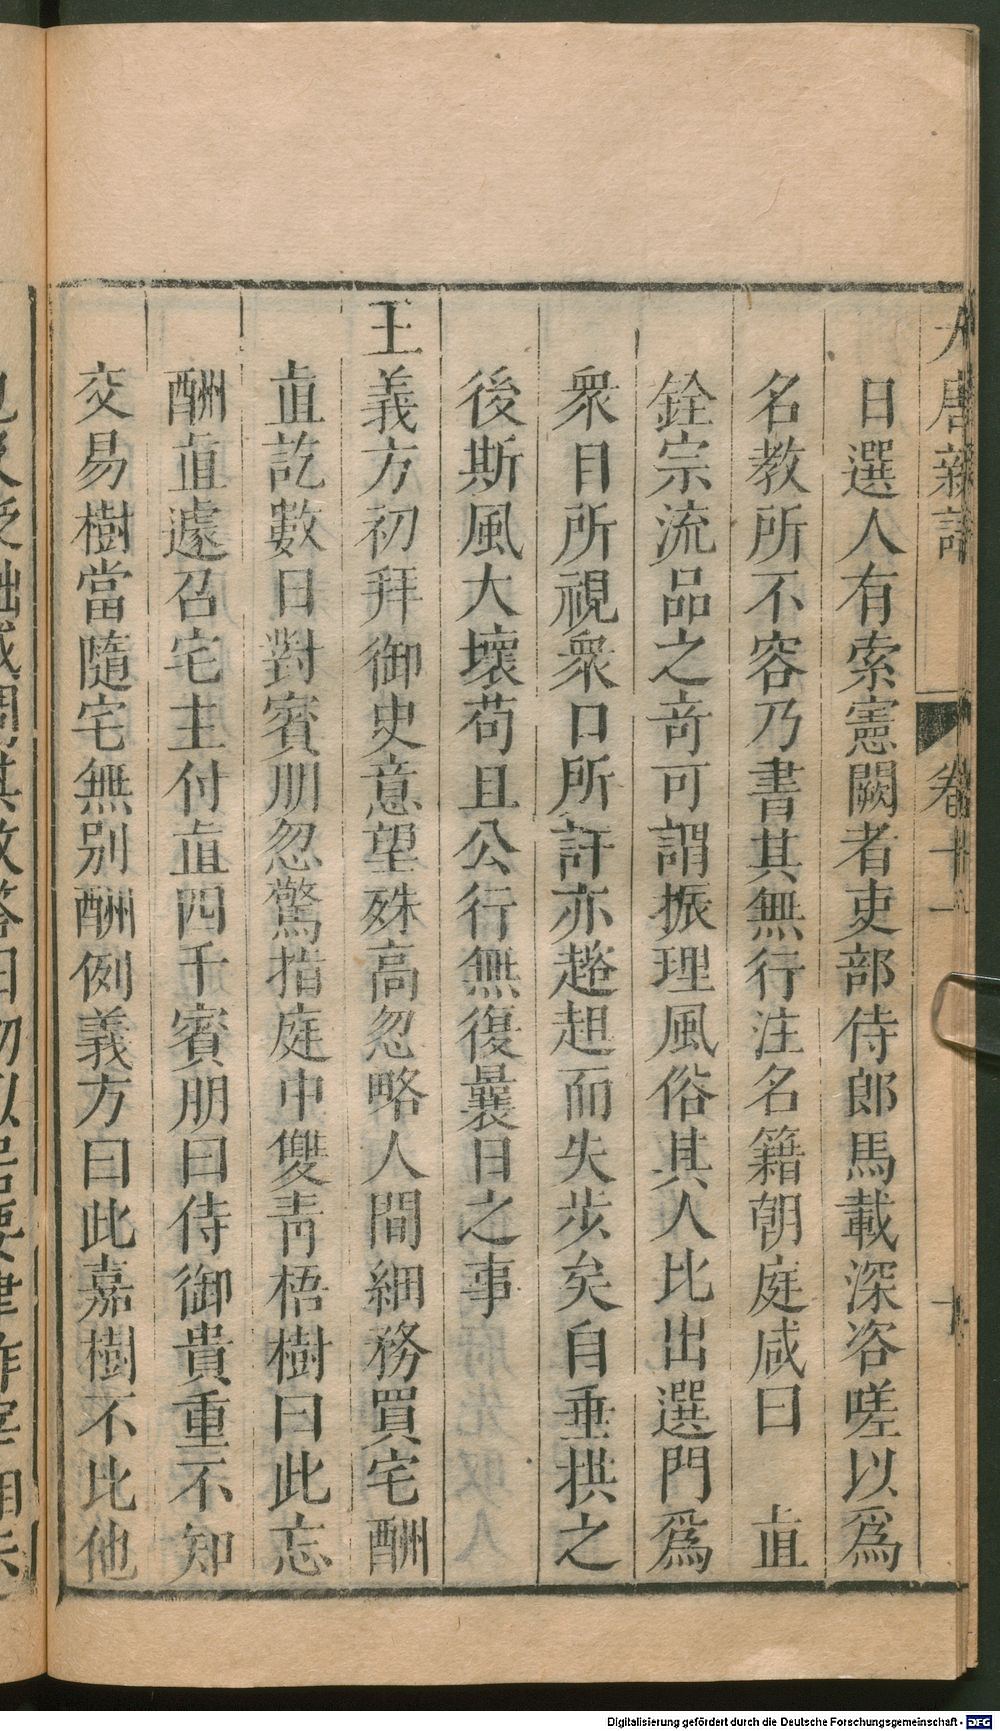 大唐新語 卷十一 十
日選人有索憲闕者吏部侍郎馬載深咨嗟以爲
名教所不容乃書其無行注名籍朝庭咸曰 直
銓宗流品之竒可謂振理風俗其人比出選門爲
衆目所視衆口所訐亦趦趄而失步矣自垂拱之
後斯風大壞苟且公行無復曩日之事
王義方初拜御史意望殊高忽略人間細務買宅酬
直訖數日對賓朋忽驚指庭中雙青梧樹曰此忘
酬直遽召宅主付直四千賓朋曰侍御貴重不知
交易樹當隨宅無別酬例義方曰此嘉樹不比他
Digitalisierung gefördert durch die Deutsche Forschungsgemeinschaft - DFG